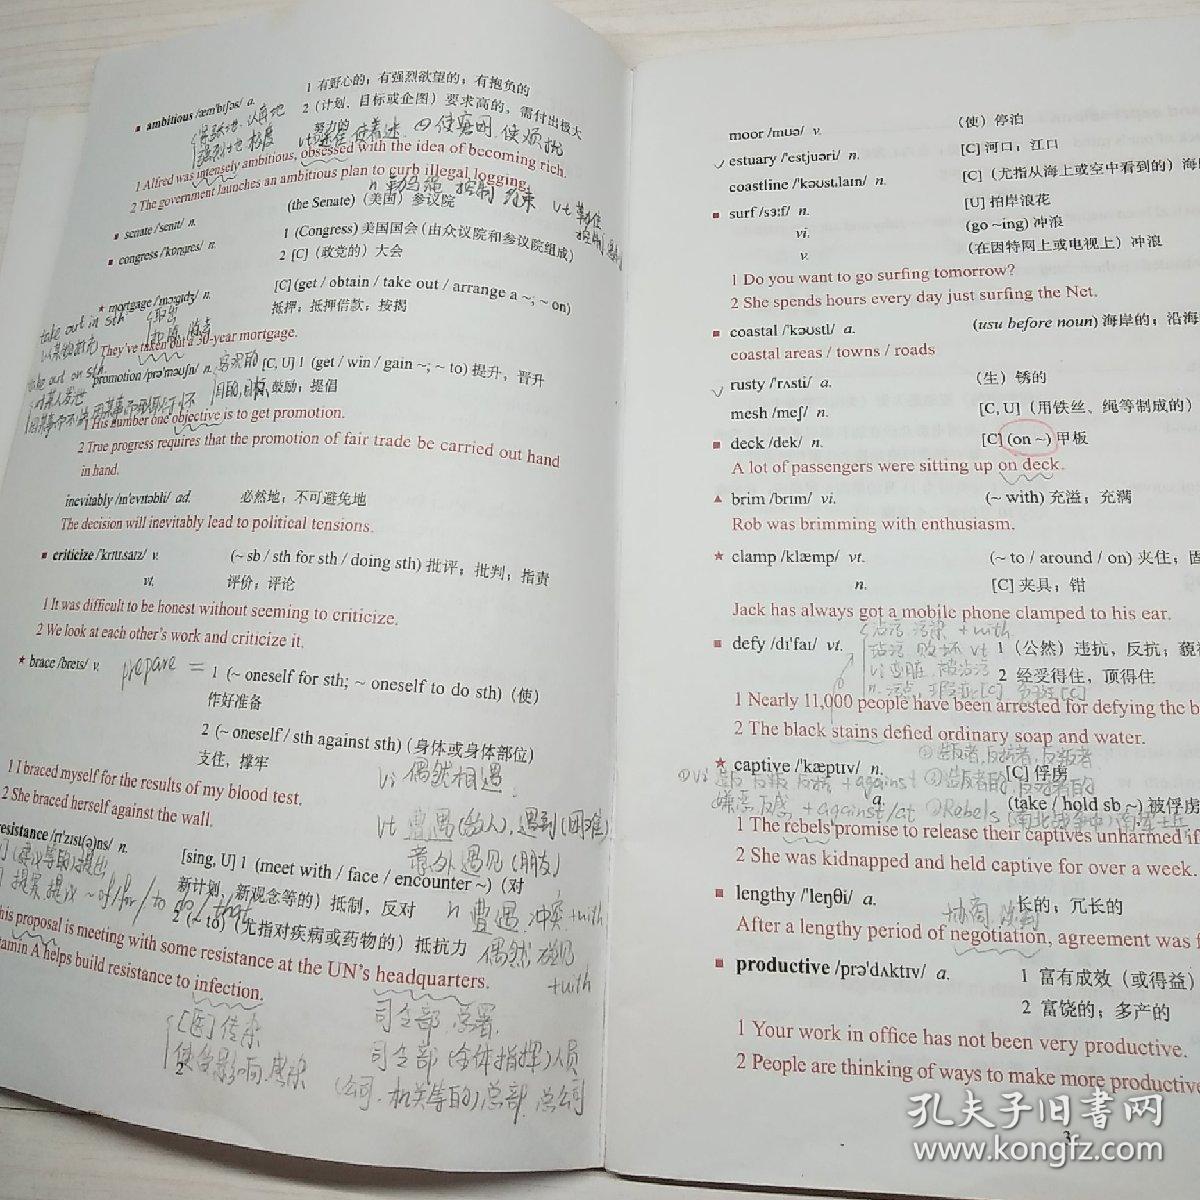 ambitious /æm'bɪʃəs/ a. 1 有野心的；有强烈欲望的；有抱负的
2 (计划、目标或企图) 要求高的，需付出极大
努力的
1 Alfred was intensely ambitious, obsessed with the idea of becoming rich.
2 The government launches an ambitious plan to curb illegal logging.
senate /'senɪt/ n. (the Senate) (美国) 参议院
congress /'kɒŋgres/ n. 1 (Congress) 美国国会 (由众议院和参议院组成)
2 [C] (政党的) 大会
mortgage /'mɔːgɪdʒ/ n. [C] (get / obtain / take out / arrange a ~; ~ on)
抵押；抵押借款；按揭
take out in sth.
They've taken out a 30-year mortgage.
take out on sth.
promotion /prə'məʊʃn/ n. [C, U] 1 (get / win / gain ~; ~ to) 提升，晋升
鼓励；提倡
1 His number one objective is to get promotion.
2 True progress requires that the promotion of fair trade be carried out hand
in hand.
inevitably /ɪn'evɪtəbli/ ad. 必然地；不可避免地
The decision will inevitably lead to political tensions.
criticize /'krɪtɪsaɪz/ v. (~ sb / sth for sth / doing sth) 批评；批判；指责
vt. 评价；评论
1 It was difficult to be honest without seeming to criticize.
2 We look at each other's work and criticize it.
brace /breɪs/ v. prepare = 1 (~ oneself for sth; ~ oneself to do sth) (使)
作好准备
2 (~ oneself / sth against sth) (身体或身体部位)
支住，撑牢
vi 偶然相遇
1 I braced myself for the results of my blood test.
2 She braced herself against the wall.
vt 遭遇(敌人), 遇到(困难)
意外遇见(朋友)
resistance /rɪ'zɪst(ə)ns/ n. [sing, U] 1 (meet with / face / encounter ~) (对
新计划、新观念等的) 抵制，反对
n 遭遇, 冲突+with
2 (~ to) (尤指对疾病或药物的) 抵抗力
偶然碰见
+with
his proposal is meeting with some resistance at the UN's headquarters.
tamin A helps build resistance to infection.
[医]传染
司令部, 总署
使受影响, 感染
司令部(全体指挥)人员
(公司, 机关等的)总部, 总公司
2
moor /mʊə/ v. (使) 停泊
estuary /'estjuəri/ n. [C] 河口；江口
coastline /'kəʊstlaɪn/ n. [C] (尤指从海上或空中看到的) 海
surf /sɜːf/ n. [U] 拍岸浪花
vi. (go ~ing) 冲浪
v. (在因特网上或电视上) 冲浪
1 Do you want to go surfing tomorrow?
2 She spends hours every day just surfing the Net.
coastal /'kəʊstl/ a. (usu before noun) 海岸的；沿海
coastal areas / towns / roads
rusty /'rʌsti/ a. (生) 锈的
mesh /meʃ/ n. [C, U] (用铁丝、绳等制成的)
deck /dek/ n. [C] (on ~) 甲板
A lot of passengers were sitting up on deck.
brim /brɪm/ vi. (~ with) 充溢；充满
Rob was brimming with enthusiasm.
clamp /klæmp/ vt. (~ to / around / on) 夹住；固
n. [C] 夹具；钳
Jack has always got a mobile phone clamped to his ear.
沾污, 污染 +with
defy /dɪ'faɪ/ vt. 1 (公然) 违抗，反抗；藐
2 经受得住，顶得住
1 Nearly 11,000 people have been arrested for defying the b
2 The black stains defied ordinary soap and water.
①造反者, 反抗者, 反叛者
captive /'kæptɪv/ n. [C] 俘虏
a. (take / hold sb ~) 被俘虏
1 The rebels promise to release their captives unharmed if
2 She was kidnapped and held captive for over a week.
lengthy /'leŋθi/ a. 长的；冗长的
协商, 谈判
After a lengthy period of negotiation, agreement was f
productive /prə'dʌktɪv/ a. 1 富有成效 (或得益)
2 富饶的；多产的
1 Your work in office has not been very productive.
2 People are thinking of ways to make more productive
3
孔夫子旧书网
www.kongfz.com